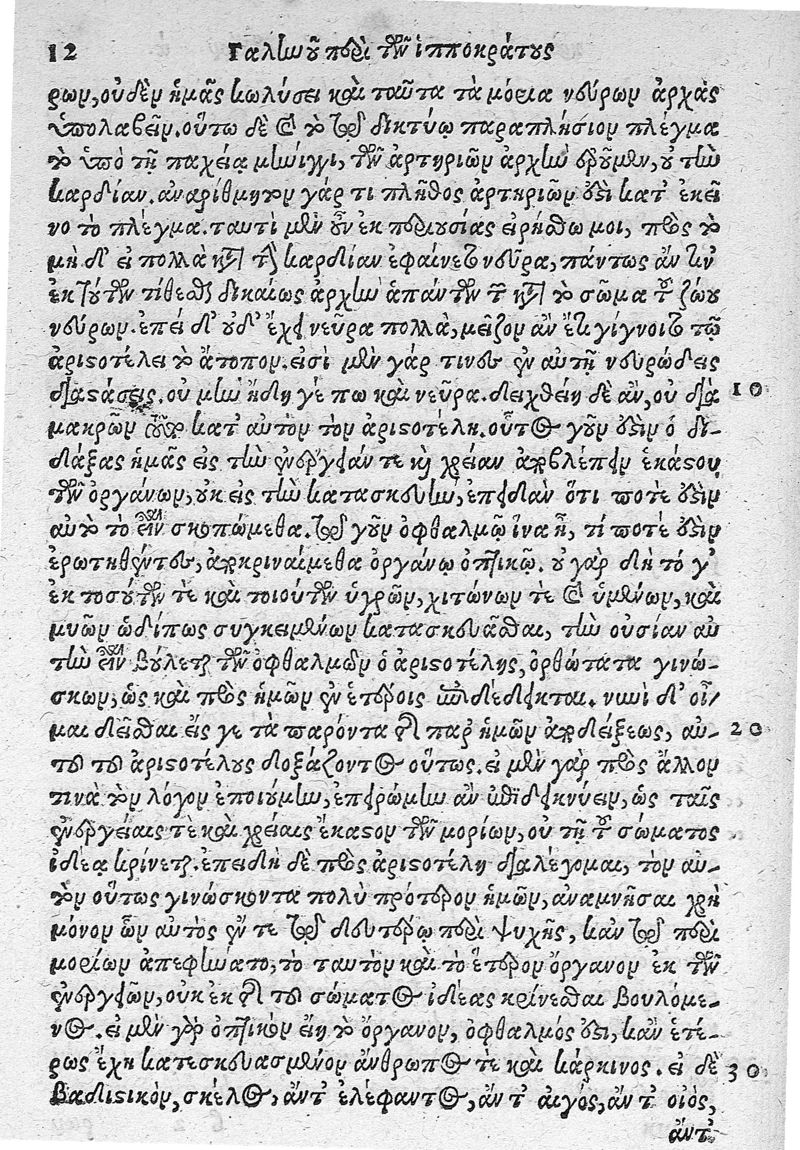 12 Γαληνοῦ περὶ τῶν ἱπποκράτους
ρων, οὐδὲν ἡμᾶς κωλύσει καὶ ταῦτα τὰ μόρια νεύρων ἀρχὰς
ὑπολαβεῖν. οὕτω δὲ καὶ τὸ τῷ δικτύῳ παραπλήσιον πλέγμα
τὸ ὑπὸ τῇ παχείᾳ μήνιγγι, τῶν ἀρτηριῶν ἀρχὴν ἐροῦμεν, οὐ τὴν
καρδίαν. ἀναρίθμητον γάρ τι πλῆθος ἀρτηριῶν ἐστὶ κατ' ἐκεῖ
νο τὸ πλέγμα. ταυτὶ μὲν οὖν ἐκ περιουσίας εἰρήσθω μοι, πρὸς τὸ
μὴ δ' εἰ πολλὰ κατὰ τὴν καρδίαν ἐφαίνετο νεῦρα, πάντως ἂν εὐ
ἐκ τούτων τίθεσθαι δικαίως ἀρχὴν ἁπάντων τῶν κατὰ τὸ σῶμα τοῦ ζώου
νεύρων. ἐπεὶ δ' οὐδ' ἔχει νεῦρα πολλὰ, μεῖζον ἂν ἔτι γίγνοιτο τῷ
ἀριστοτέλει τὸ ἄτοπον. εἰσὶ μὲν γάρ τινες ἐν αὐτῇ νευρώδεις
διαστάσεις. οὐ μὴν ἤδη γέ πω καὶ νεῦρα. δειχθείη δὲ ἂν, οὐ διὰ 10
μακρῶν κατ' αὐτὸν τὸν ἀριστοτέλη. οὗτος γοῦν ἐστὶν ὁ δι-
δάξας ἡμᾶς εἰς τὴν ἐνέργειάν τε καὶ χρείαν ἀποβλέπειν ἑκάστου
τῶν ὀργάνων, οὐκ εἰς τὴν κατασκευὴν, ἐπειδὰν ὅτι ποτὲ ἐστὶν
αὐτὸ τὸ εἶναι σκοπώμεθα. τῷ γοῦν ὀφθαλμῷ ἵνα ᾖ, τί ποτέ ἐστιν
ἐρωτηθέντες, ἀποκριναίμεθα ὀργάνῳ ὀπτικῷ. οὐ γὰρ δὴ τό γ'
ἐκ τοσούτων τὲ καὶ τοιούτων ὑγρῶν, χιτώνων τὲ καὶ ὑμένων, καὶ
μυῶν ὡδίπως συγκειμένων κατασκευᾶσθαι, τὴν οὐσίαν αὐ
τὴν εἶναι βούλεται τῶν ὀφθαλμῶν ὁ ἀριστοτέλης, ὀρθότατα γινώ-
σκων, ὡς καὶ πρὸς ἡμῶν ἐν ἑτέροις ἐπιδέδεικται. νυνὶ δ' οἶ/
μαι δεῖσθαι εἴς γε τὰ παρόντα τῆς παρ' ἡμῶν ἀποδείξεως, αὐ- 20
τοῦ τοῦ ἀριστοτέλους δοξάζοντος οὕτως. εἰ μὲν γὰρ πρὸς ἄλλον
τινὰ τὸν λόγον ἐποιούμην, ἐπειρώμην ἂν ἐπιδεικνύειν, ὡς ταῖς
ἐνεργείαις τὲ καὶ χρείαις ἕκαστον τῶν μορίων, οὐ τῇ τοῦ σώματος
ἰδέᾳ κρίνεται. ἐπειδὴ δὲ πρὸς ἀριστοτέλη διαλέγομαι, τὸν αὐ-
τὸν οὕτως γινώσκοντα πολὺ πρότερον ἡμῶν, ἀναμνῆσαι χρὴ
μόνον ὧν αὐτὸς ἔν τε τῷ δευτέρῳ περὶ ψυχῆς, κἀν τῷ περὶ
μορίων ἀπεφήνατο, τὸ ταυτὸν καὶ τὸ ἕτερον ὄργανον ἐκ τῶν
ἐνεργειῶν, οὐκ ἐκ τῆς τοῦ σώματος ἰδέας κρίνεσθαι βουλόμε-
νος. εἰ μὲν γὰρ ὀπτικὸν εἴη τὸ ὄργανον, ὀφθαλμός ἐστι, κἂν ἑτέ-
ρως ἔχῃ κατεσκευασμένον ἄνθρωπος τὲ καὶ κάρκινος. εἰ δὲ 30
βαδιστικὸν, σκέλος, ἄντ' ἐλέφαντος, ἄν τ' αἰγὸς, ἄν τ' οἰός,
ἄντ'